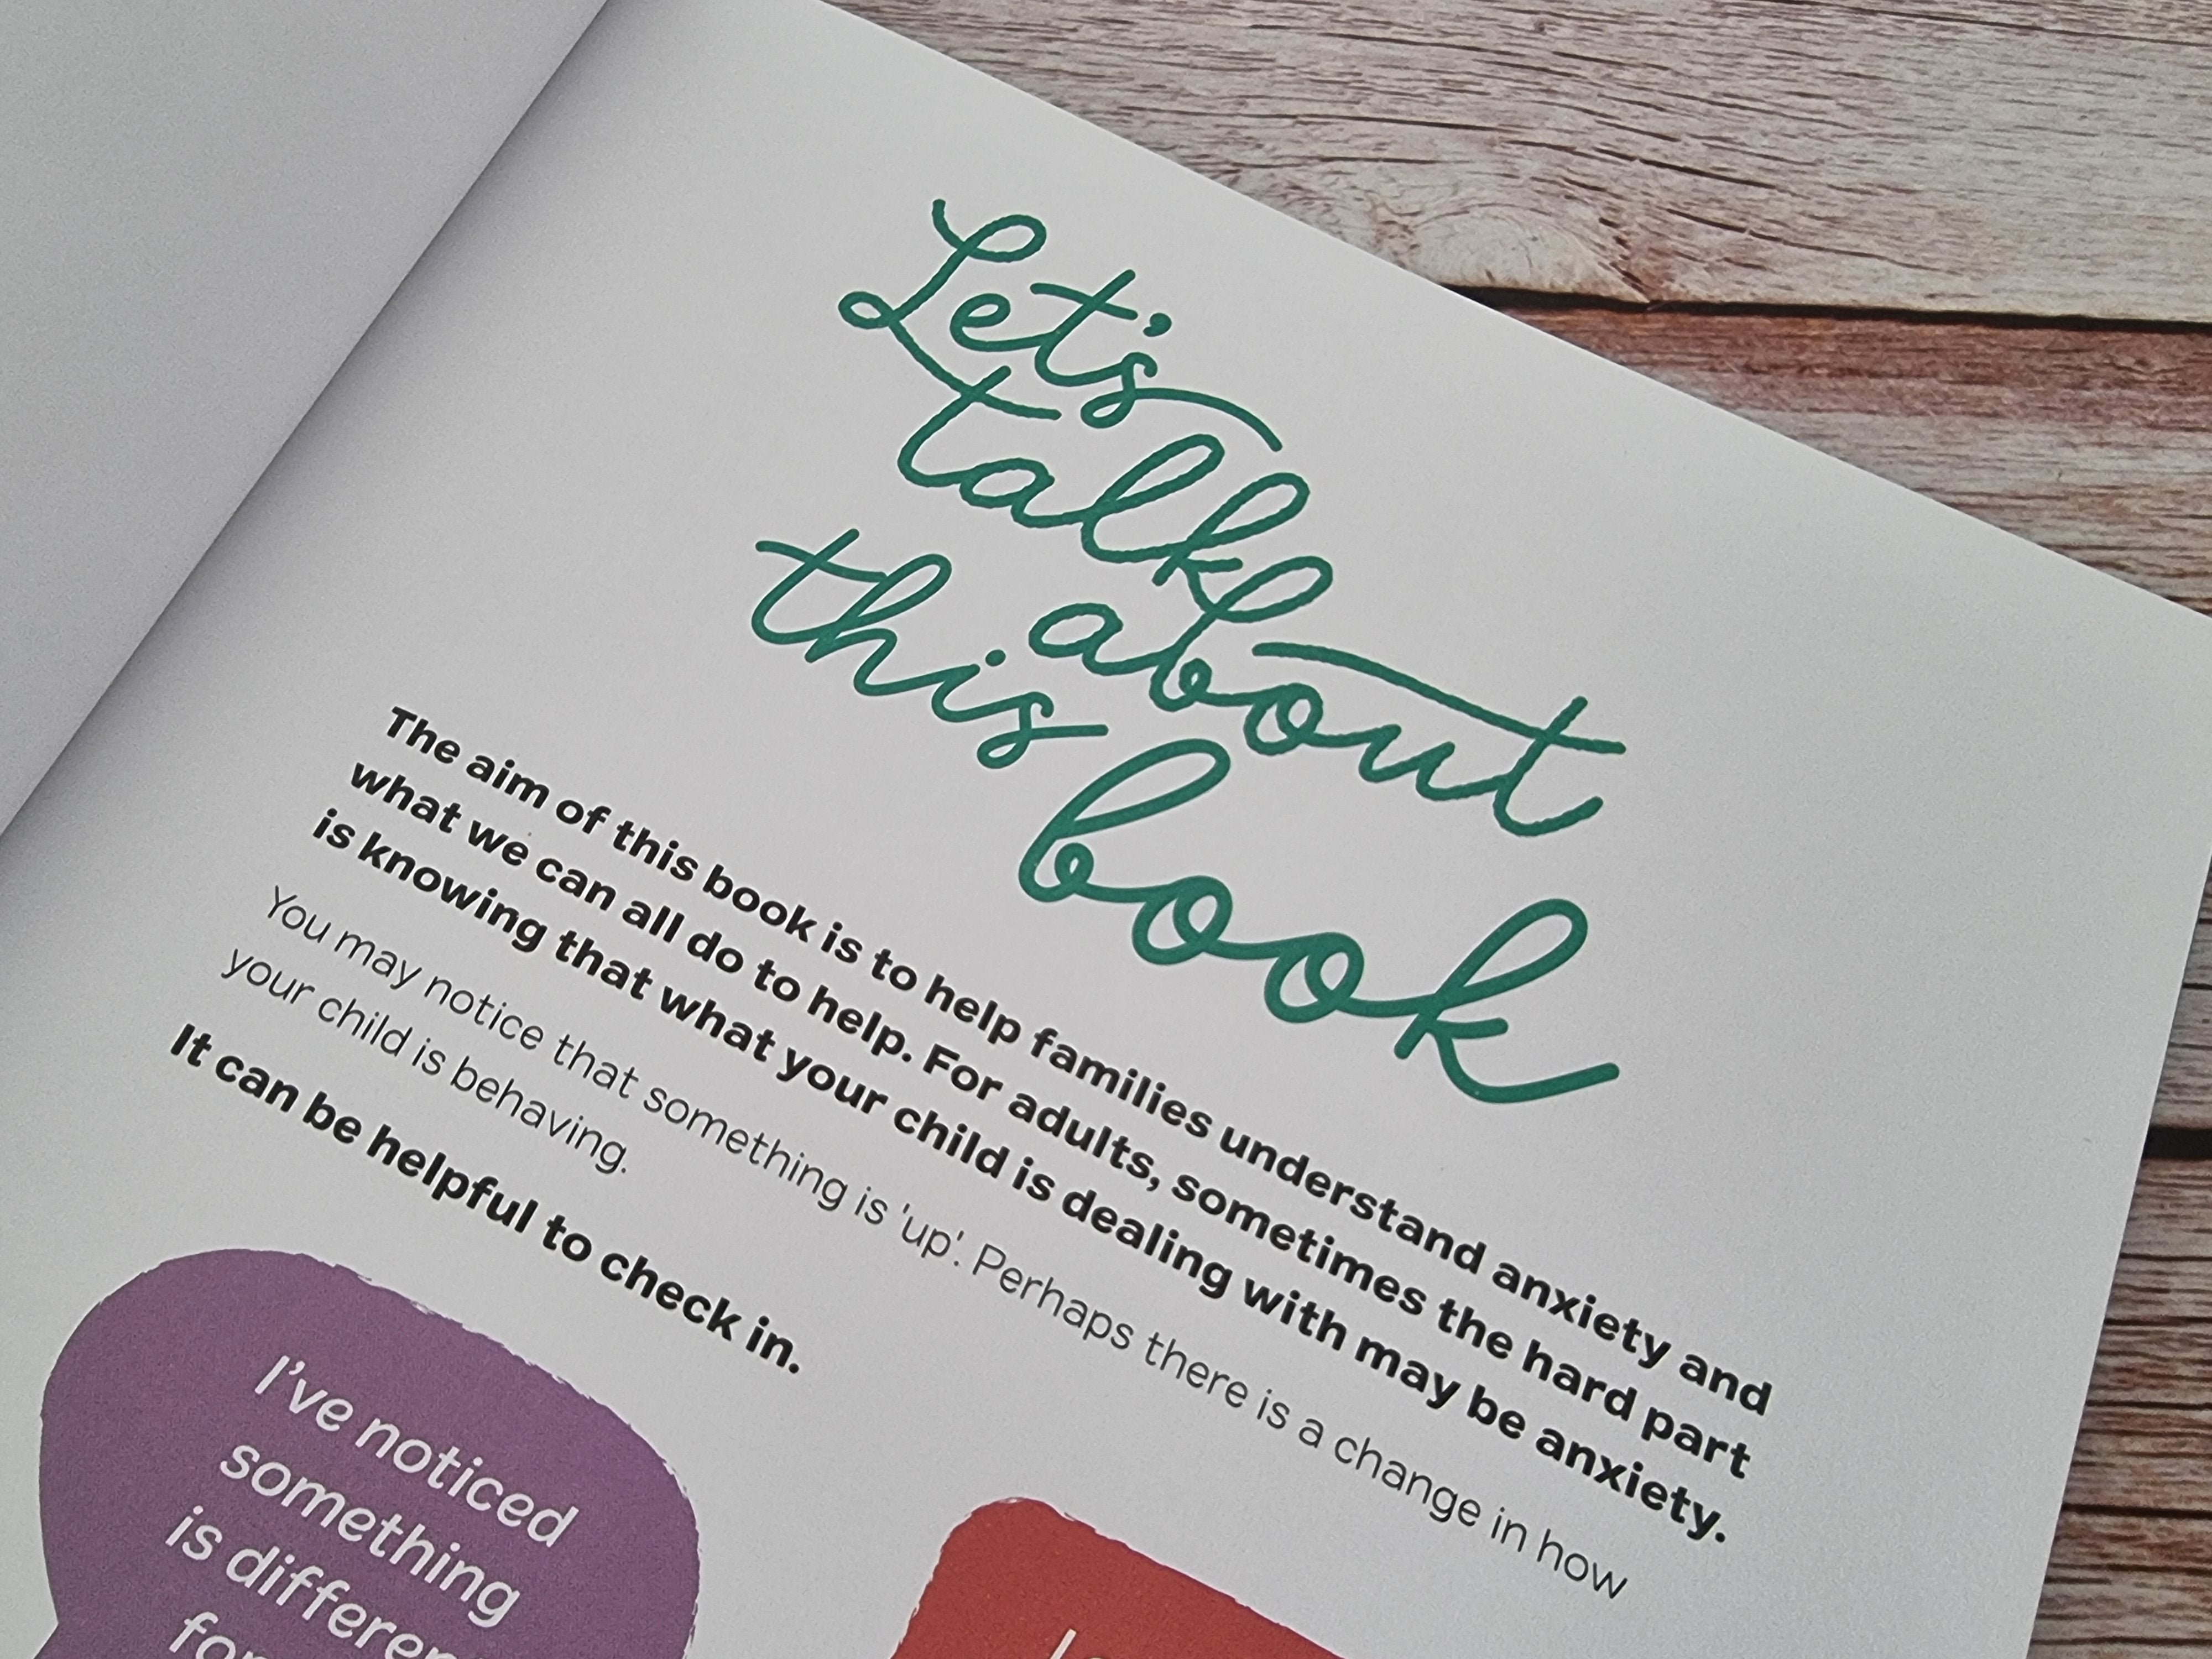 Let's
talk
about
this
book
The aim of this book is to help families understand anxiety and
what we can all do to help. For adults, sometimes the hard part
is knowing that what your child is dealing with may be anxiety.
You may notice that something is 'up'. Perhaps there is a change in how
your child is behaving.
It can be helpful to check in.
I've noticed
something
is